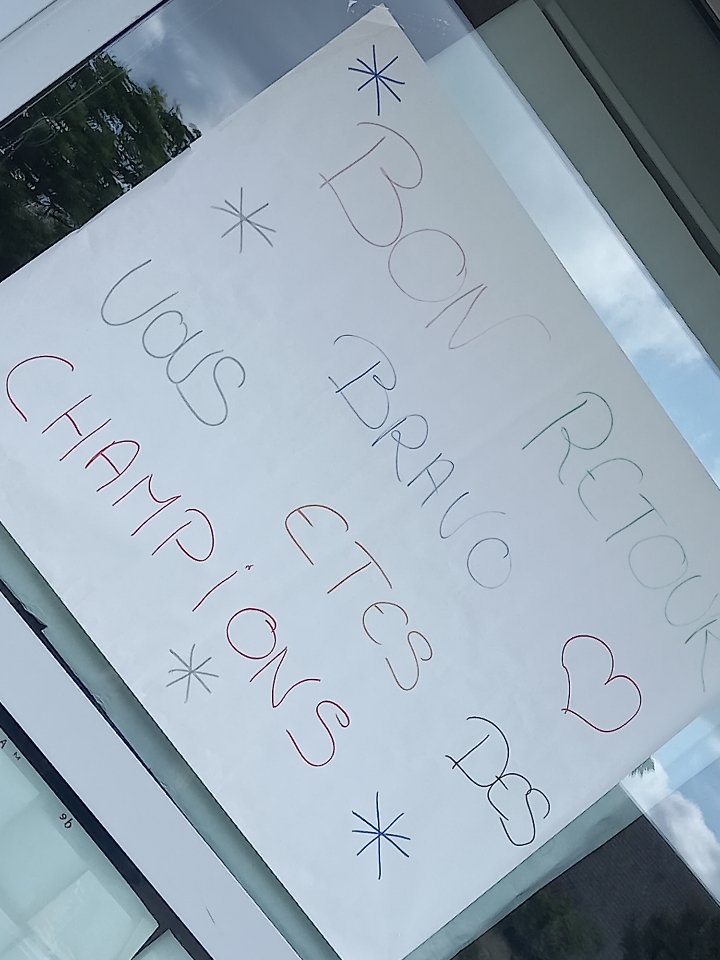 BON RETOUR
BRAVO
VOUS ETES DES
CHAMPIONS